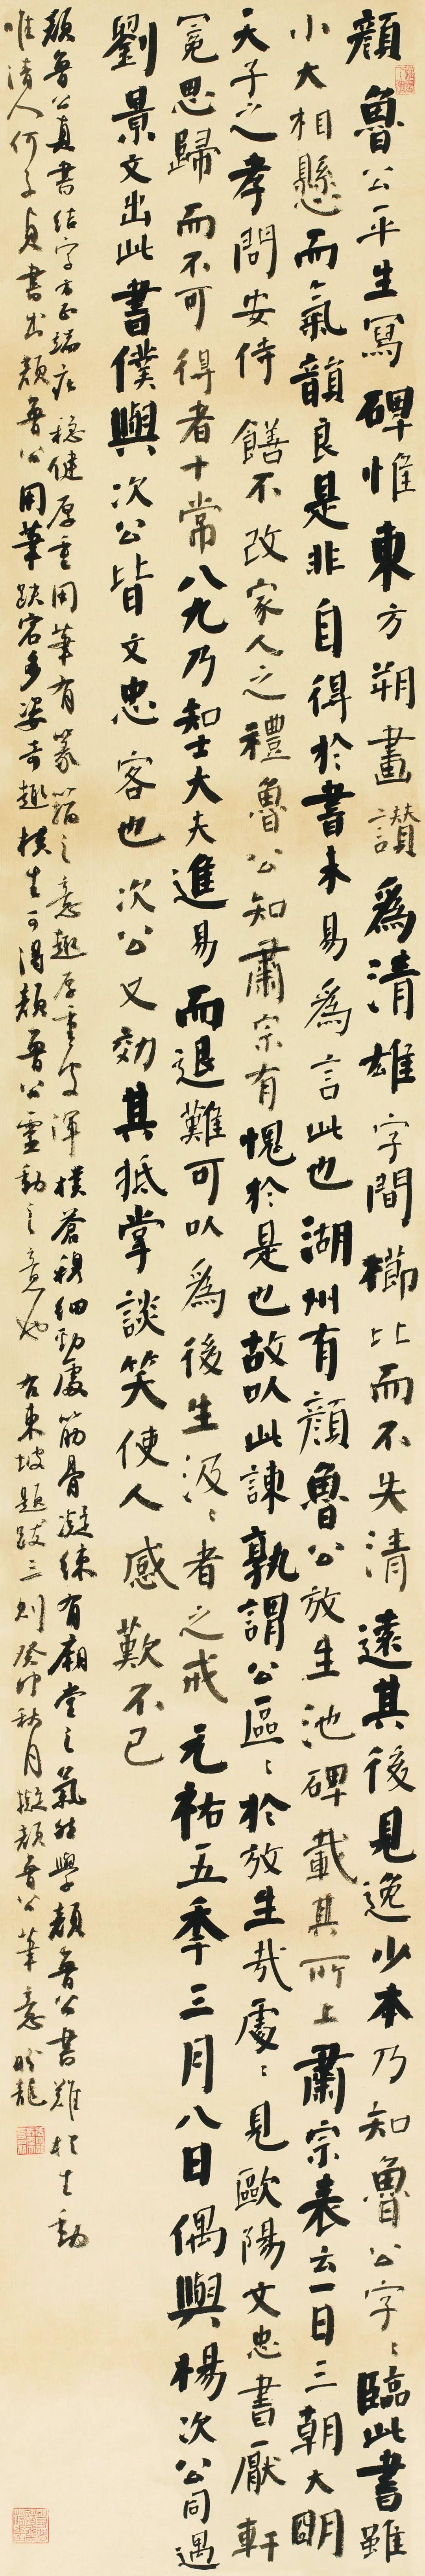 顏魯公平生寫碑惟東方朔畫讚爲清雄字間櫛比而不失清遠其後見逸少本乃知魯公字〻臨此書雖
小大相懸而氣韻良是非自得於書未易爲言此也湖州有顏魯公放生池碑載其所上肅宗表云一日三朝大明
天子之孝問安侍饍不改家人之禮魯公知肅宗有愧於是也故以此諫孰謂公區〻於放生哉處〻見歐陽文忠書厭軒
冕思歸而不可得者十常八九乃知士大夫進易而退難可以爲後生汲〻者之戒元祐五季三月八日偶與楊次公同遇
劉景文出此書僕與次公皆文忠客也次公又効其抵掌談笑使人感歎不已
顏魯公真書結字方正端庄穩健厚重用筆有篆籀之意趣厚重處渾樸蒼穆細勁處筋骨凝練有廟堂之氣然學顏魯公書難於生動
唯清人何子貞書出顏魯公用筆跌宕多姿奇趣橫生可得顏魯公靈動之意也右東坡題跋三則癸卯秋月擬顏魯公筆意